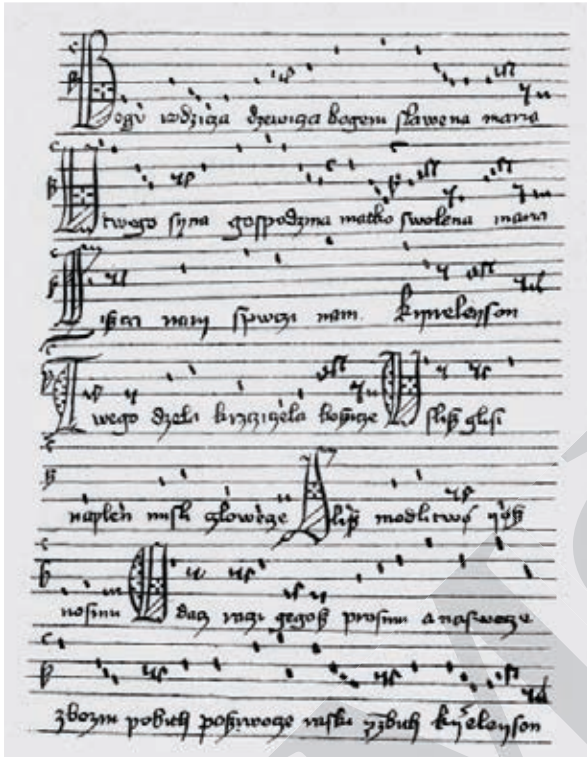 Bogu rodzicza dzewicza bogem slawena maria
U twego syna gospodzina matko swolena maria
nam spwczi nam kyrieleyson
Twego dzela krzcziczela bozicze Uslisz glosi
naplen misli czlowecze Slisz modlitwo yosz
nosimi Odacz raczi gegosz prosimi a naswecze
zbozni pobith poszwocze raski kyrieleyson